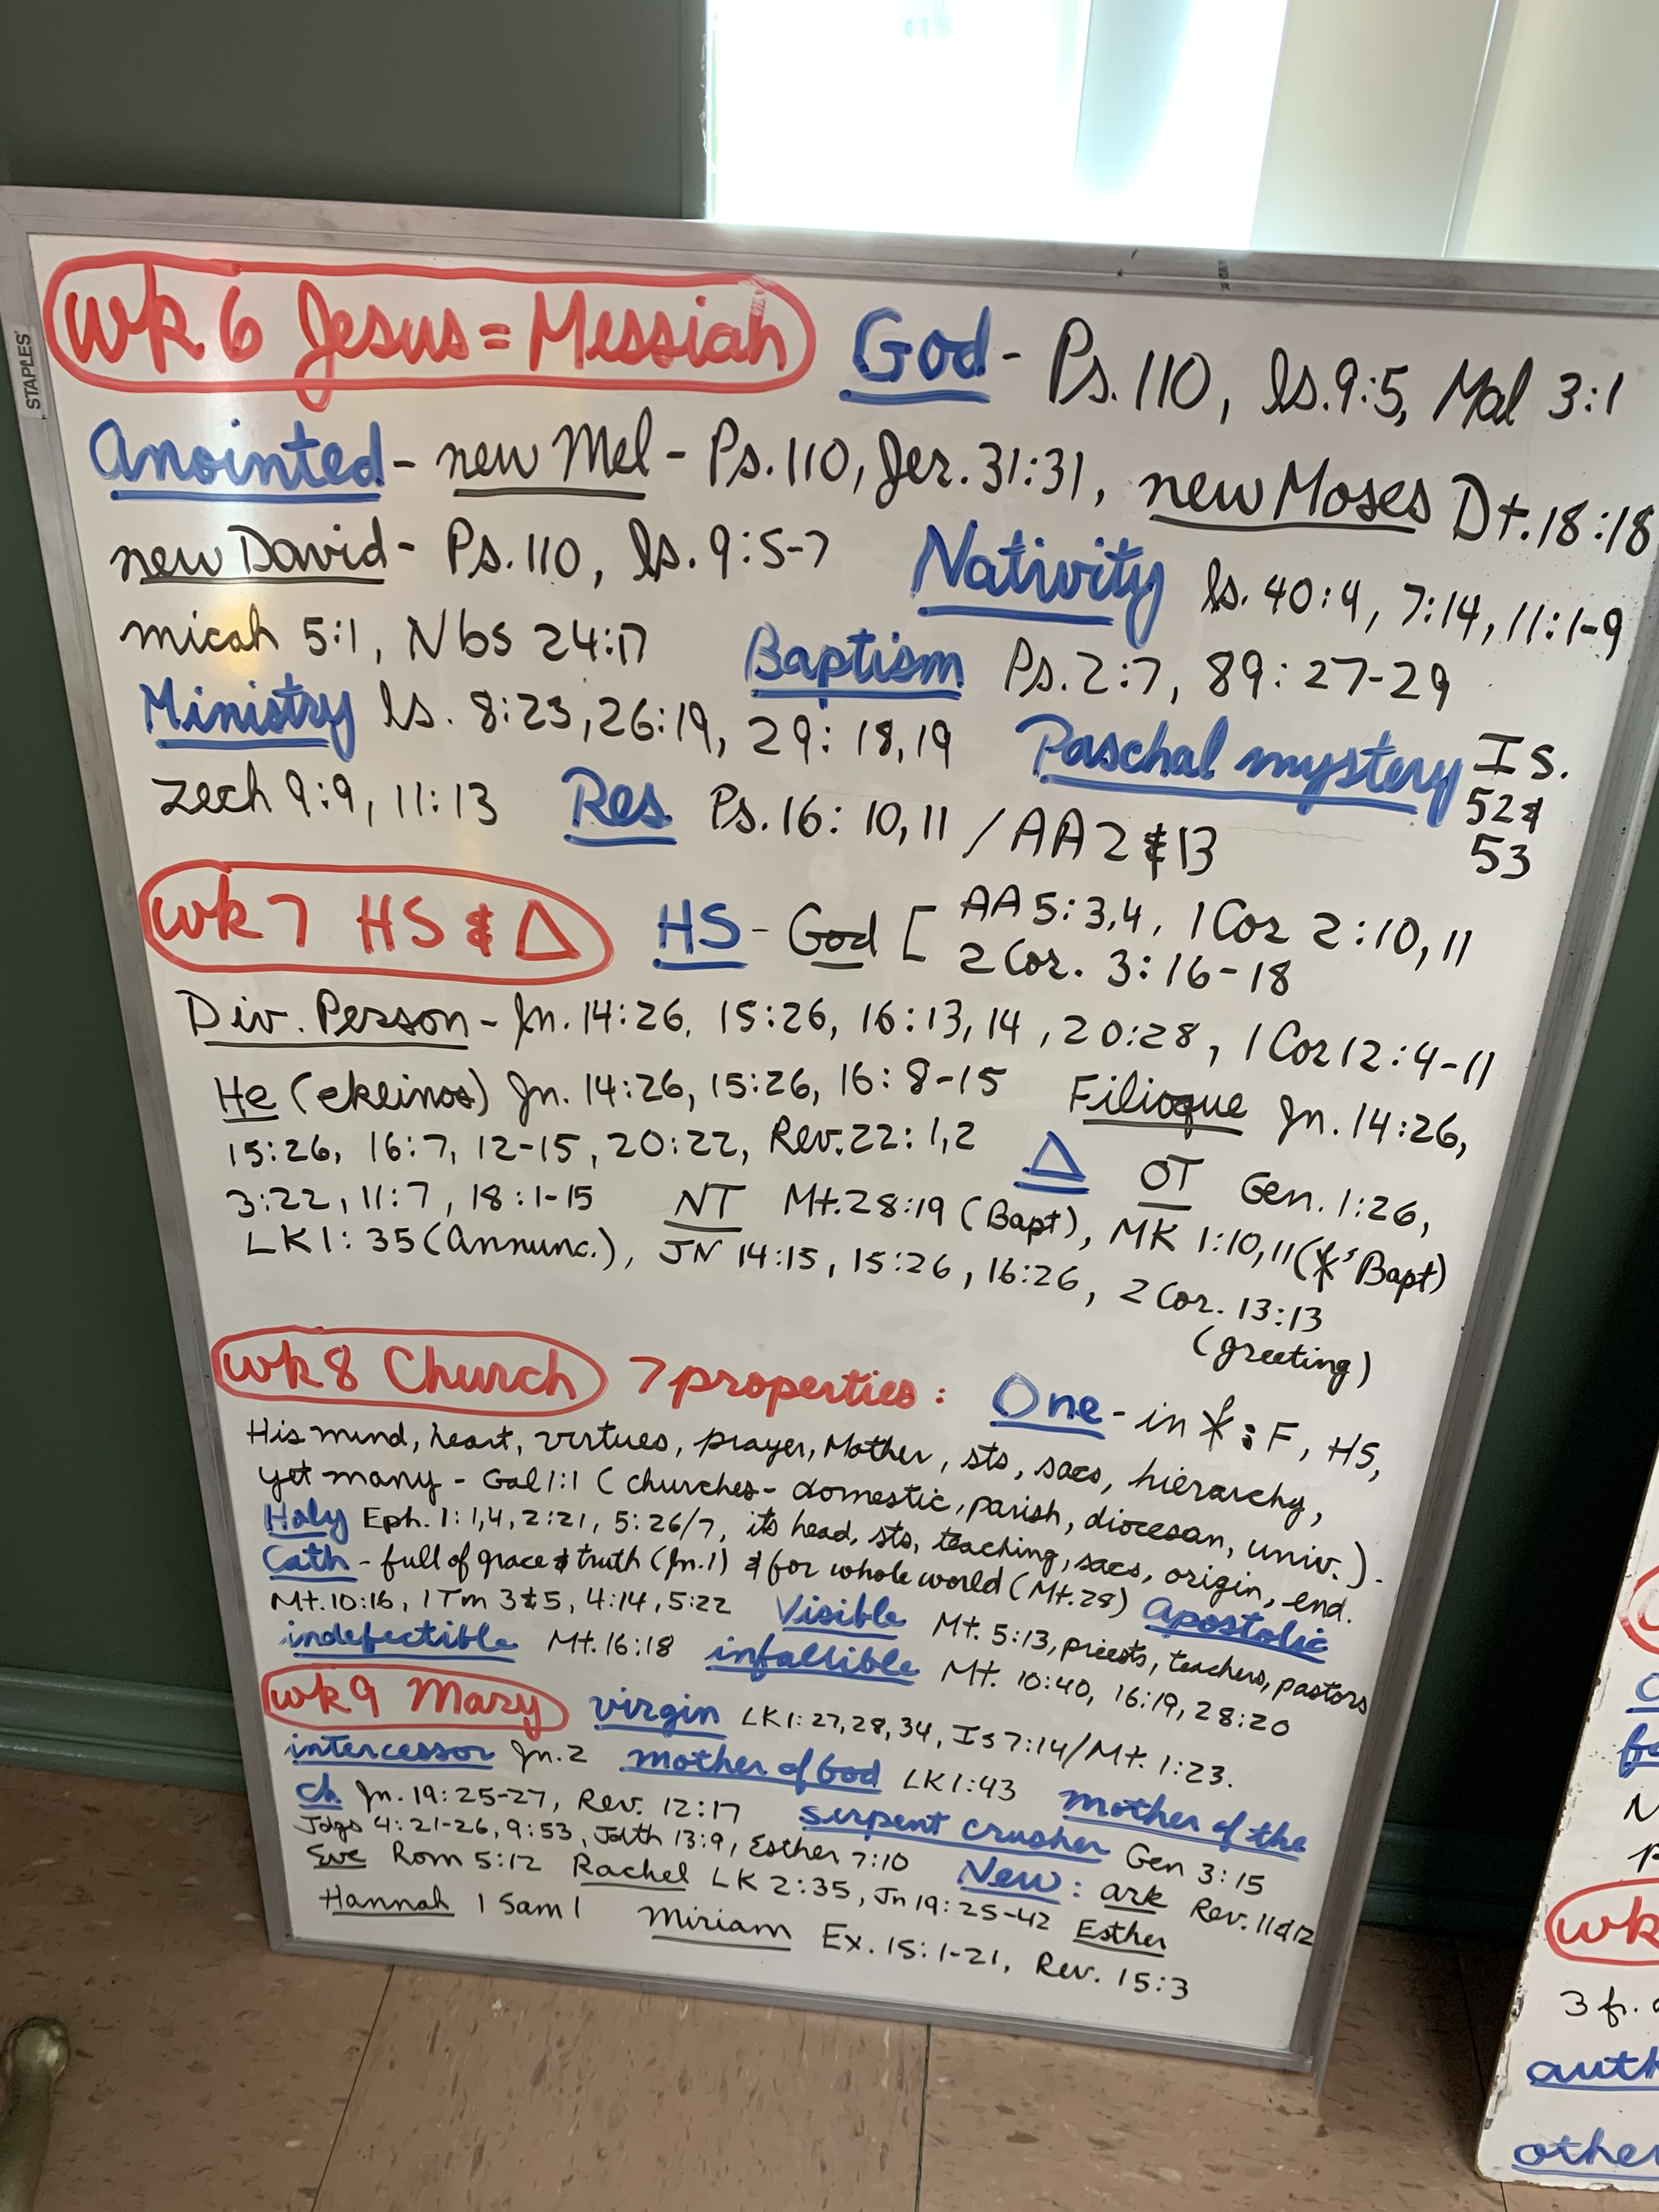 STAPLES
wk 6 Jesus = Messiah God - Ps. 110, Is. 9:5, Mal 3:1
Anointed - new Mel - Ps. 110, Jer. 31:31, new Moses Dt. 18:18
new David - Ps. 110, Is. 9:5-7 Nativity Is. 40:4, 7:14, 11:1-9
micah 5:1, Nbs 24:17 Baptism Ps. 2:7, 89:27-29
Ministry Is. 8:23, 26:19, 29:18,19 Paschal mystery Is. 52 & 53
Zech 9:9, 11:13 Res Ps. 16:10,11 / AA 2 & 13
wk 7 HS & Δ HS - God [ AA 5:3,4, 1 Cor 2:10,11
2 Cor. 3:16-18
Div. Person - Jn. 14:26, 15:26, 16:13,14, 20:28, 1 Cor 12:4-11
He (ekeinos) Jn. 14:26, 15:26, 16:8-15 Filioque Jn. 14:26,
15:26, 16:7, 12-15, 20:22, Rev. 22:1,2 Δ OT Gen. 1:26,
3:22, 11:7, 18:1-15 NT Mt. 28:19 (Bapt), MK 1:10,11 (X's Bapt)
LK 1:35 (Annunc.), JN 14:15, 15:26, 16:26, 2 Cor. 13:13
(greeting)
wk 8 Church 7 properties: One - in X: F, HS,
His mind, heart, virtues, prayer, Mother, sts, sacs, hierarchy,
yet many - Gal 1:1 (churches - domestic, parish, diocesan, univ.).
Holy Eph. 1:1,4, 2:21, 5:26/7, its head, sts, teaching, sacs, origin, end.
Cath - full of grace & truth (Jn. 1) & for whole world (Mt. 28) Apostolic
Mt. 10:16, 1 Tm 3 & 5, 4:14, 5:22 Visible Mt. 5:13, priests, teachers, pastors
indefectible Mt. 16:18 infallible Mt. 10:40, 16:19, 28:20
wk 9 Mary virgin LK 1:27,28,34, Is 7:14/Mt. 1:23.
intercessor Jn. 2 mother of God LK 1:43 mother of the
Ch. Jn. 19:25-27, Rev. 12:17 serpent crusher Gen 3:15
Jdgs 4:21-26, 9:53, Jdth 13:9, Esther 7:10 New: ark Rev. 11 & 12
Eve Rom 5:12 Rachel LK 2:35, Jn 19:25-42 Esther
Hannah 1 Sam 1 Miriam Ex. 15:1-21, Rev. 15:3
wk
3 fr.
auth
other